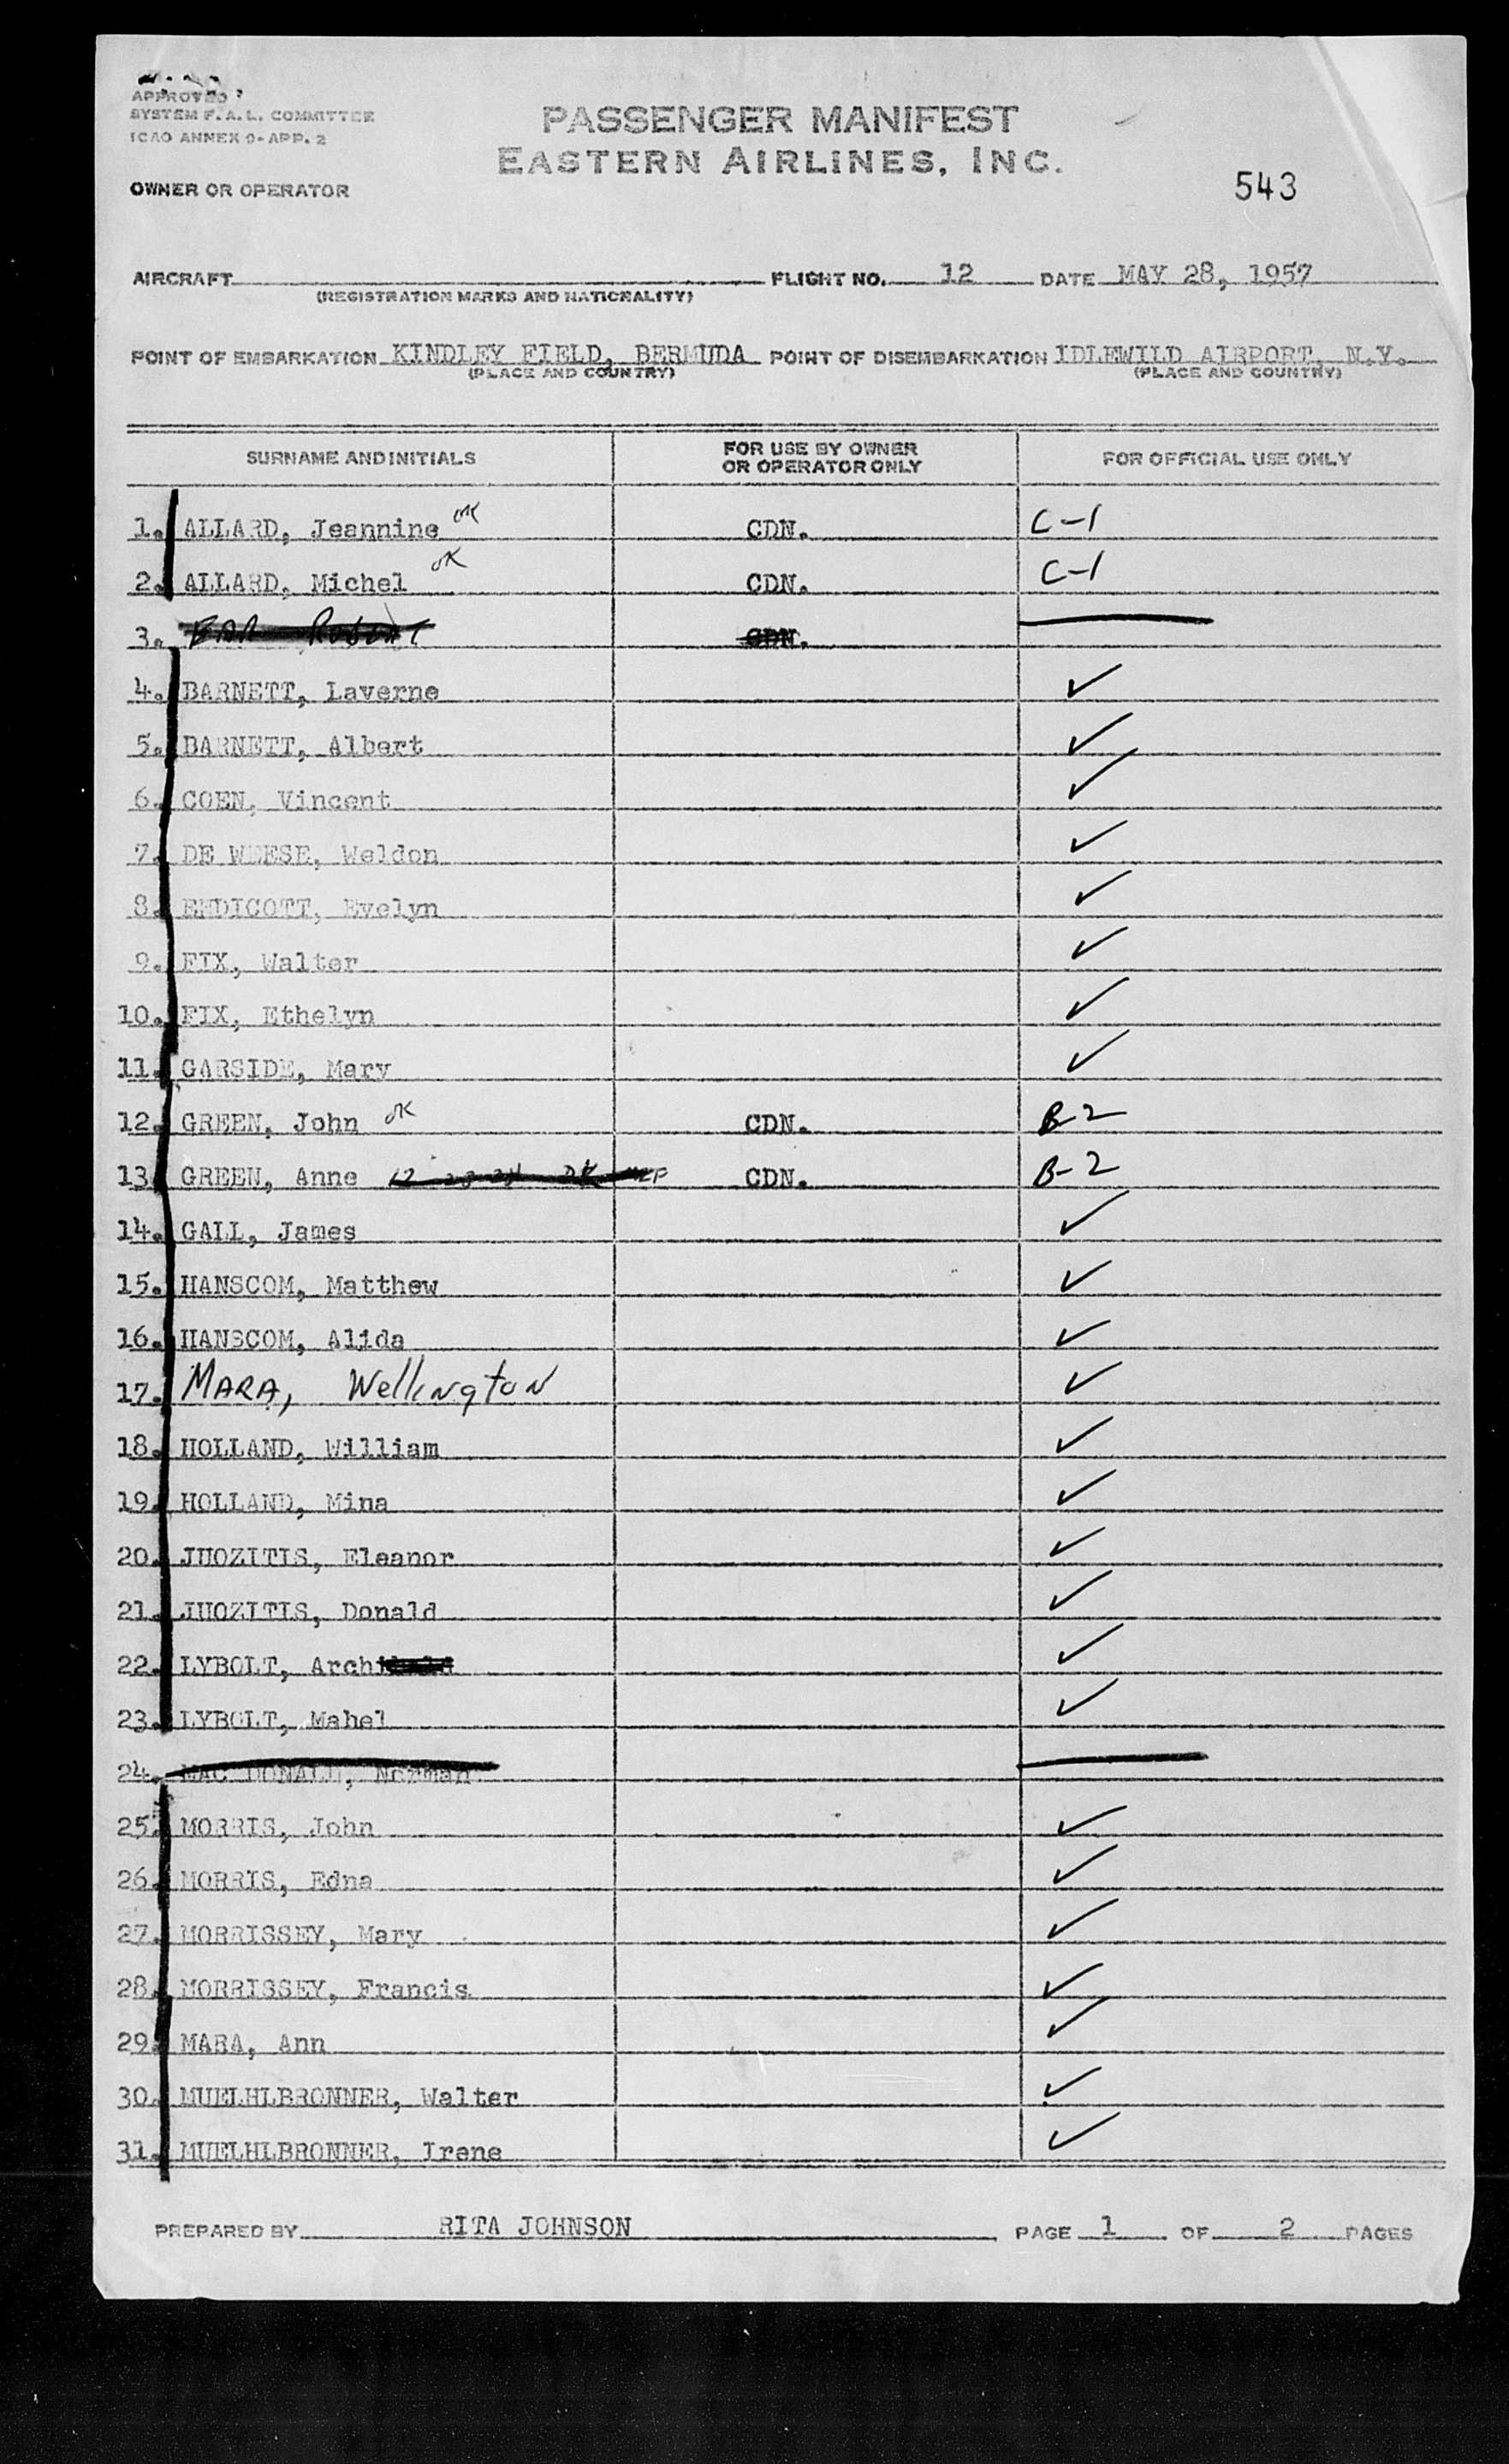 APPROVED
SYSTEM F.A.L. COMMITTEE
ICAO ANNEX 9-APP. 2
PASSENGER MANIFEST
EASTERN AIRLINES, INC.
OWNER OR OPERATOR
543
AIRCRAFT FLIGHT NO. 12 DATE MAY 28, 1957
(REGISTRATION MARKS AND NATIONALITY)
POINT OF EMBARKATION KINDLEY FIELD, BERMUDA POINT OF DISEMBARKATION IDLEWILD AIRPORT, N.Y.
(PLACE AND COUNTRY) (PLACE AND COUNTRY)
SURNAME AND INITIALS FOR USE BY OWNER OR OPERATOR ONLY FOR OFFICIAL USE ONLY
1. ALLARD, Jeannine OK CDN. C-1
2. ALLARD, Michel OK CDN. C-1
3. CDN.
4. BARNETT, Laverne ✓
5. BARNETT, Albert ✓
6. COEN, Vincent ✓
7. DE WEESE, Weldon ✓
8. ENDICOTT, Evelyn ✓
9. FIX, Walter ✓
10. FIX, Ethelyn ✓
11. GARSIDE, Mary ✓
12. GREEN, John OK CDN. B-2
13. GREEN, Anne CDN. B-2
14. GALL, James ✓
15. HANSCOM, Matthew ✓
16. HANSCOM, Alida ✓
17. MARA, Wellington ✓
18. HOLLAND, William ✓
19. HOLLAND, Mina ✓
20. JUOZITIS, Eleanor ✓
21. JUOZITIS, Donald ✓
22. LYBOLT, Archi ✓
23. LYBOLT, Mabel ✓
24. MAC DONALD, Norman
25. MORRIS, John ✓
26. MORRIS, Edna ✓
27. MORRISSEY, Mary ✓
28. MORRISSEY, Francis ✓
29. MARA, Ann ✓
30. MUELHLBRONNER, Walter ✓
31. MUELHLBRONNER, Irene ✓
PREPARED BY RITA JOHNSON PAGE 1 OF 2 PAGES